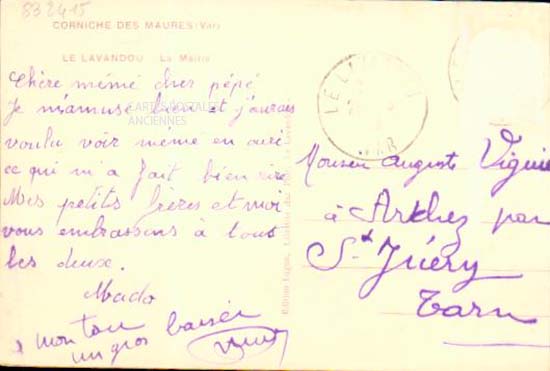 832415
CORNICHE DES MAURES (Var)
LE LAVANDOU La Mairie
Chère mémé cher pépé
Je m'amuse bien et j'aurais
voulu voir mémé en
ce qui m'a fait bien rire
Mes petits frères et moi
vous embrassons à tous
les deux.
Mado
mon
un gros baiser
CARTES POSTALES
ANCIENNES
LE LAVANDOU
VAR
Monsieur Auguste Viguier
à Arthez par
St Juéry
Tarn